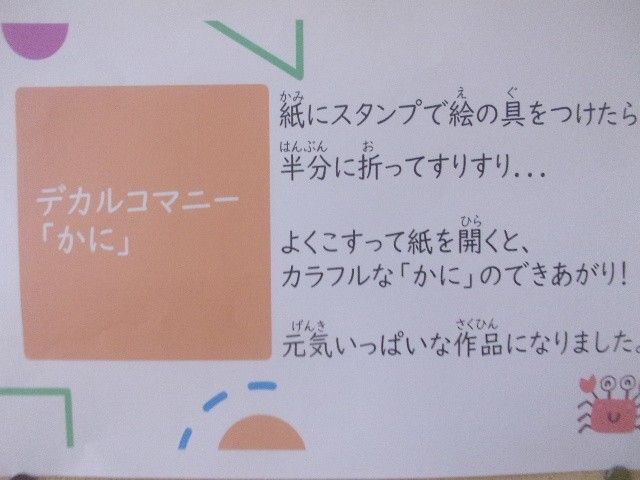 デカルコマニー
「かに」
紙にスタンプで絵の具をつけたら
半分に折ってすりすり...
よくこすって紙を開くと、
カラフルな「かに」のできあがり!
元気いっぱいな作品になりました。